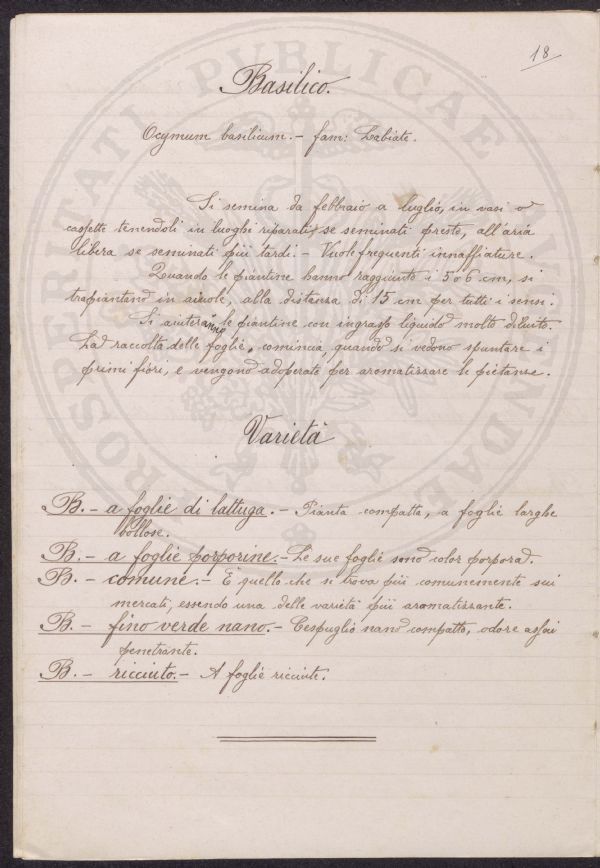 18
Basilico.
Ocymum basilicum. - fam: Labiate.
Si semina da febbraio a luglio, in vasi o
cassette tenendoli in luoghi riparati, se seminati presto, all'aria
libera se seminati più tardi. - Vuole frequenti innaffiature.
Quando le piantine hanno raggiunto i 5 o 6 cm, si
trapiantano in aiuole, alla distanza di 15 cm per tutti i sensi.
Si aiuteranno le piantine con ingrasso liquido molto diluito.
La raccolta delle foglie, comincia quando si vedono spuntare i
primi fiori, e vengono adoperate per aromatizzare le pietanze.
Varietà
B. - a foglie di lattuga. - Pianta compatta, a foglie larghe
bollose.
B. - a foglie porporine. - Le sue foglie sono color porpora.
B. - comune. - È quello che si trova più comunemente sui
mercati, essendo una delle varietà più aromatizzante.
B. - fino verde nano. - Cespuglio nano compatto, odore assai
penetrante.
B. - ricciuto. - A foglie ricciute.
PROSPERITATI PUBLICAE AUGENDAE